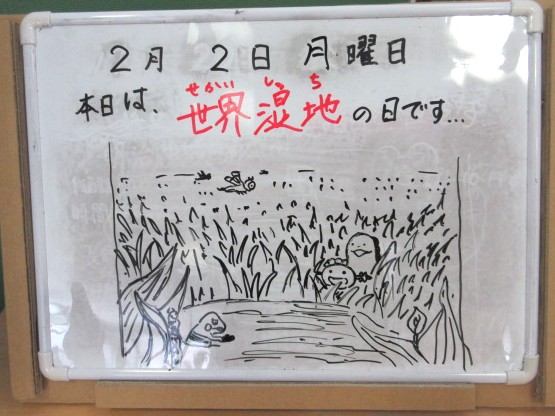 2月 2日 月曜日
せかい しっち
本日は、世界湿地の日です…